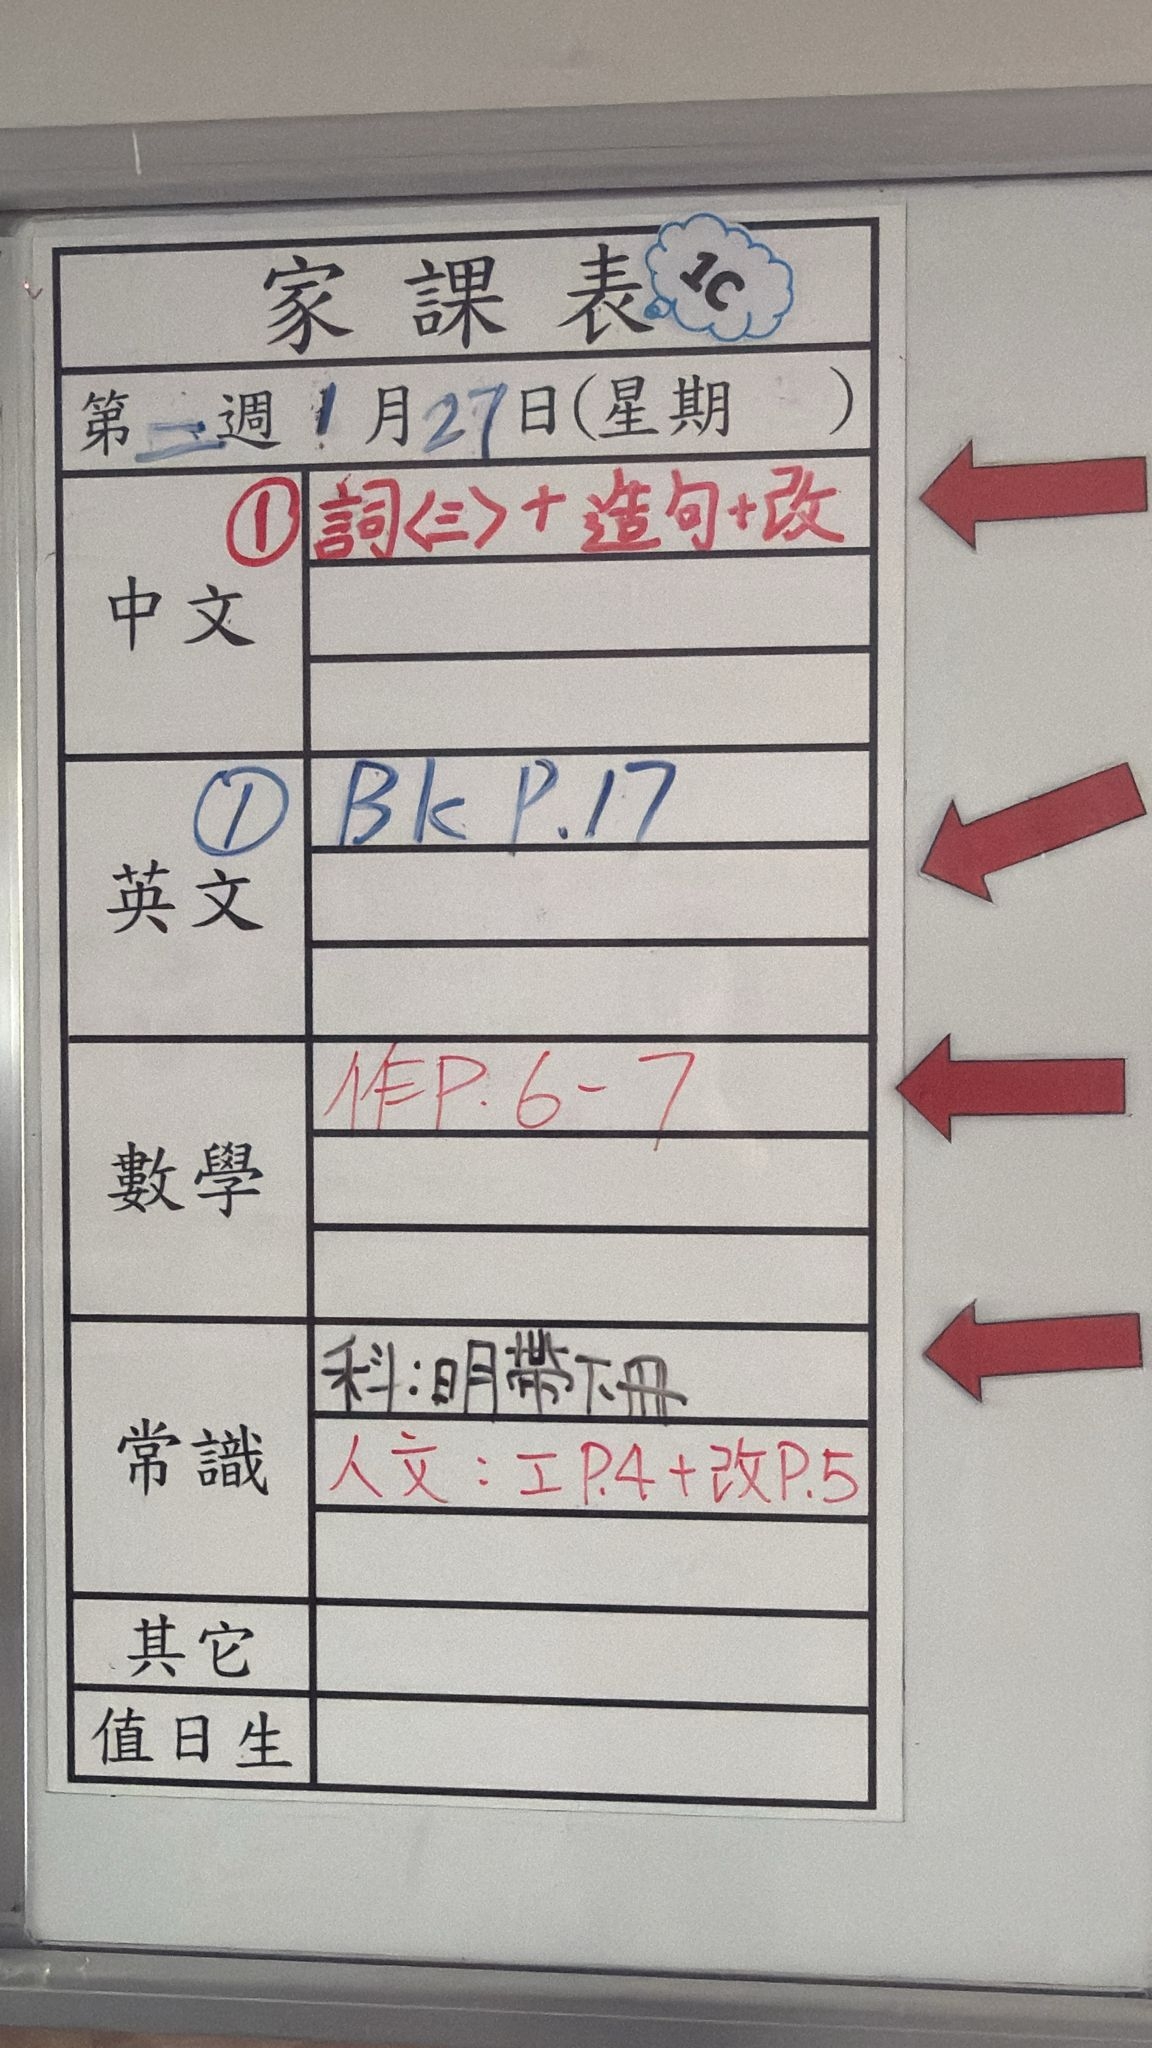 家課表 1C
第二週 1月27日(星期 )
中文 ① 詞<三>+造句+改
英文 ① Bk P.17
數學 作P.6-7
常識 科:明帶下冊
人文:工P.4+改P.5
其它
值日生